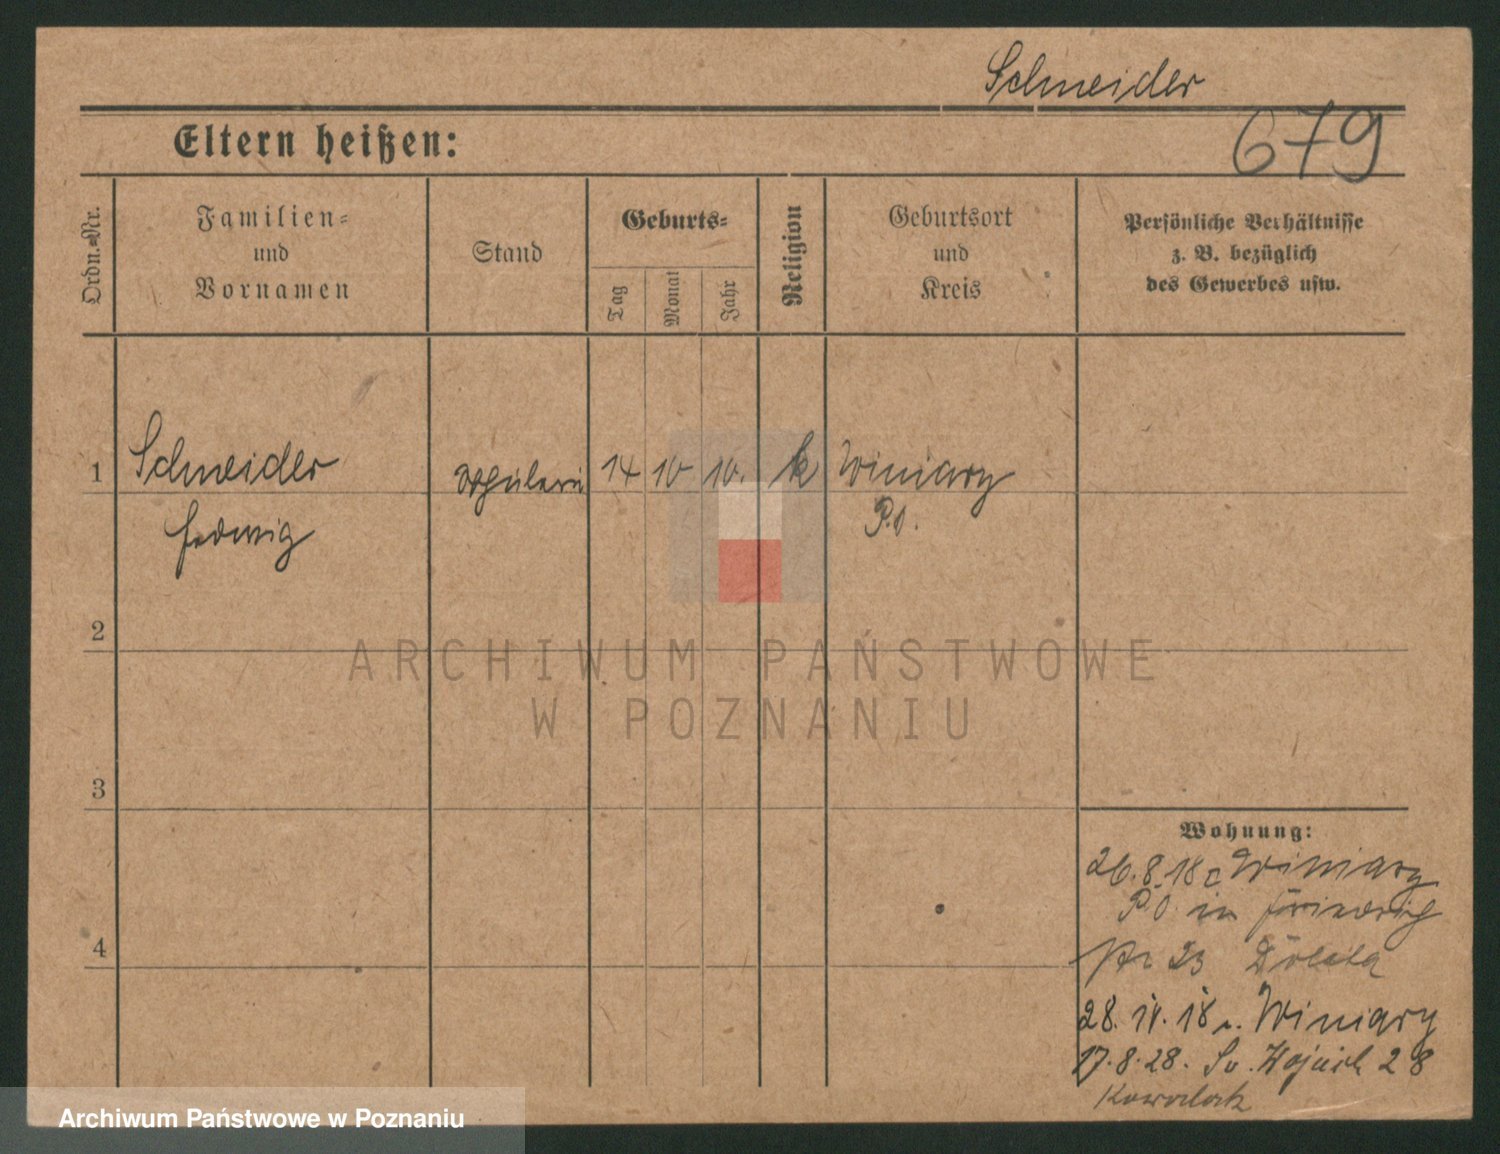 Schneider
679
Eltern heißen:
Ordn.-Nr.
Familien-
und
Vornamen
Stand
Geburts-
Tag
Monat
Jahr
Religion
Geburtsort
und
Kreis
Persönliche Verhältnisse
z. B. bezüglich
des Gewerbes usw.
1 Schneider Schülerin 14 10 10. k Winiary
Hedwig P.O.
2
3
4
Wohnung:
26.8.18 Winiary
P.O. in
23
28. 18 Winiary
17.8.28. Św. Wojciech 28
Kowalak
ARCHIWUM PAŃSTWOWE
W POZNANIU
Archiwum Państwowe w Poznaniu